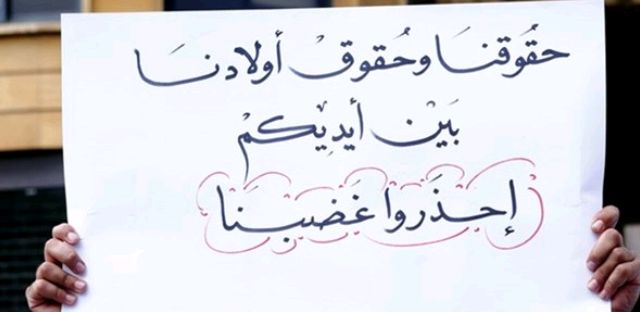 حقُوقنَا وحُقوقْ أولادنَا
بَيْن أيدِيكمْ
إحذَروا غَضبنَا